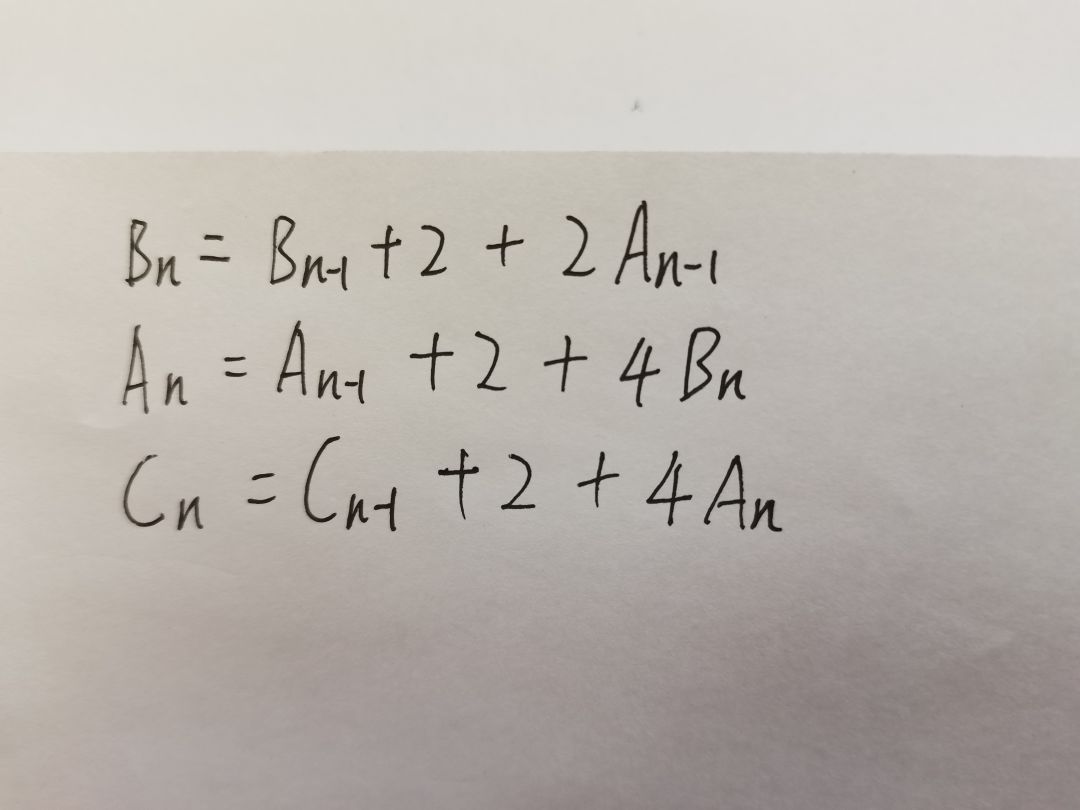 Bn = Bn-1 + 2 + 2 An-1
An = An-1 + 2 + 4 Bn
Cn = Cn-1 + 2 + 4 An